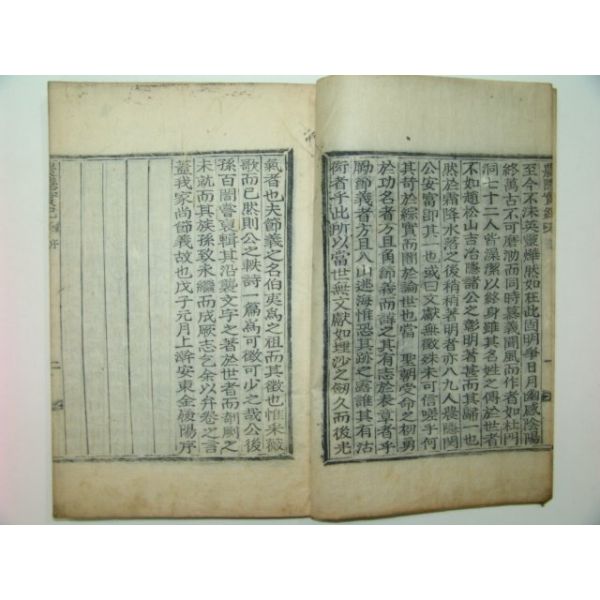 農隱實紀 序 一
至今不沫英靈燁然如在此固明爭日月幽感陰陽
終萬古不可磨泐而同時慕義聞風而作者如杜門
洞七十二人皆深潔以終身雖其名姓之傳於世者
不如趙松山吉冶隱諸公之彰明著甚而其歸
然於霜降水落之後稍稍著明者亦八九人農隱閔
公安富卽其一也或曰文獻無徵殊未可信嗟乎何
其苛於綜實而闊於論世也當 聖朝受命之初勇
於功名者方且角節義而諱之其有志於泰章者乎
勵節義者方且入山逃海惟恐其跡之露誰其有沽
衒者乎此所以當世無文獻如埋沙之劒久而後光
氣者也夫節義之名伯夷爲之祖而其徵也惟采薇
歌而已然則公之軼詩一篇爲可徵可少之哉公後
孫百 嘗裒輯其沿襲文字之著於世者而剞劂之
未就而其族孫致永繼而成厥志乞余以弁卷之言
蓋我家尚節義故也戊子元月上澣安東金 陽序
農隱實紀 序 二